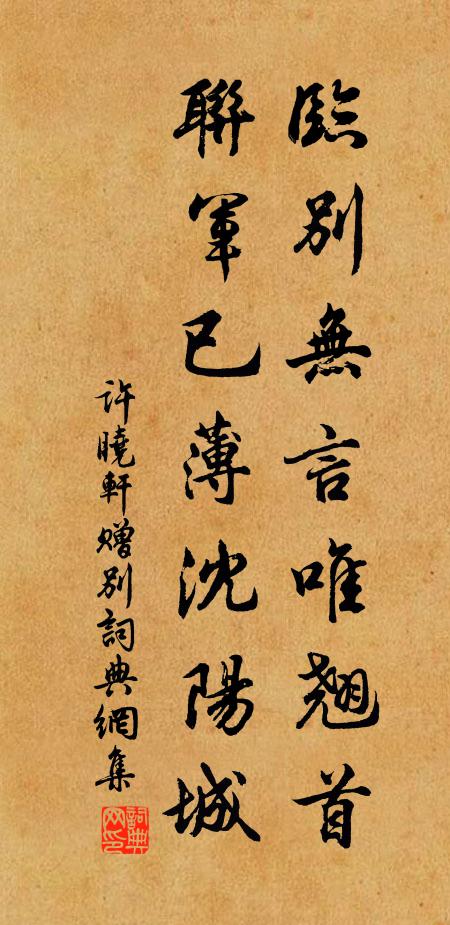 臨別無言唯翹首
聯軍已薄沈陽城
许曉軒贈別詞典網集
詞典网印